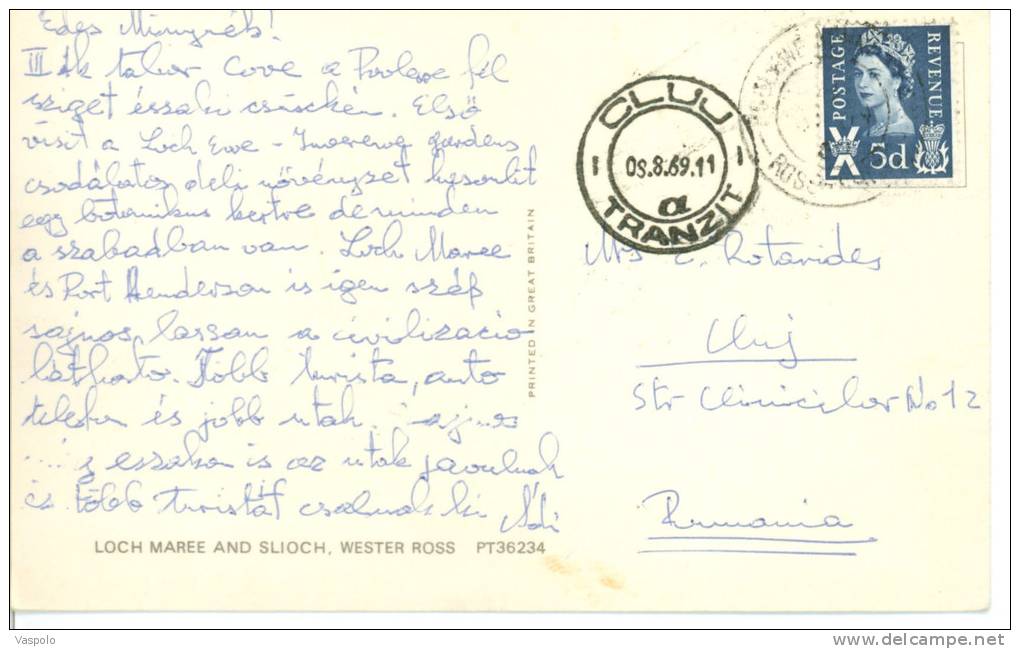 Edes Minyrék!
III ik tabor Cove a Poolewe fél
sziget északi csücskén. Első
visit a Loch Ewe - Inverewe gardens
csodálatos deli növényzet hasonlit
egy botanikus kertre de minden
a szabadban van. Loch Maree
és Port Henderson is igen szép
sajnos lassan a civilizacio
látható. Több turista, auto
telefon és jobb utak. sajnos
eszakon is az utak javulnak
és több turistát csalnak ki Ádi
LOCH MAREE AND SLIOCH, WESTER ROSS PT36234
PRINTED IN GREAT BRITAIN
CLUJ
08.8.69.11
a
TRANZIT
POSTAGE REVENUE
5d
Mrs E. Rotarides
Cluj
Str Clinicilor No 12
Rumania
Vaspolo
http://www.delcampe.net